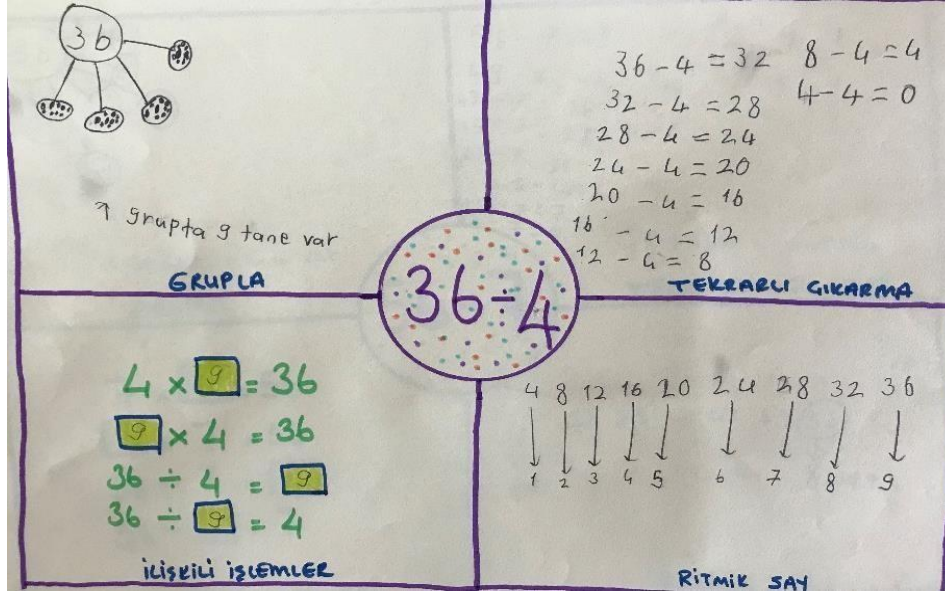 36
1 grupta 9 tane var
GRUPLA
36 - 4 = 32
32 - 4 = 28
28 - 4 = 24
24 - 4 = 20
20 - 4 = 16
16 - 4 = 12
12 - 4 = 8
8 - 4 = 4
4 - 4 = 0
TEKRARLI ÇIKARMA
36 ÷ 4
4 x 9 = 36
9 x 4 = 36
36 ÷ 4 = 9
36 ÷ 9 = 4
İLİŞKİLİ İŞLEMLER
4 8 12 16 20 24 28 32 36
1 2 3 4 5 6 7 8 9
RİTMİK SAY